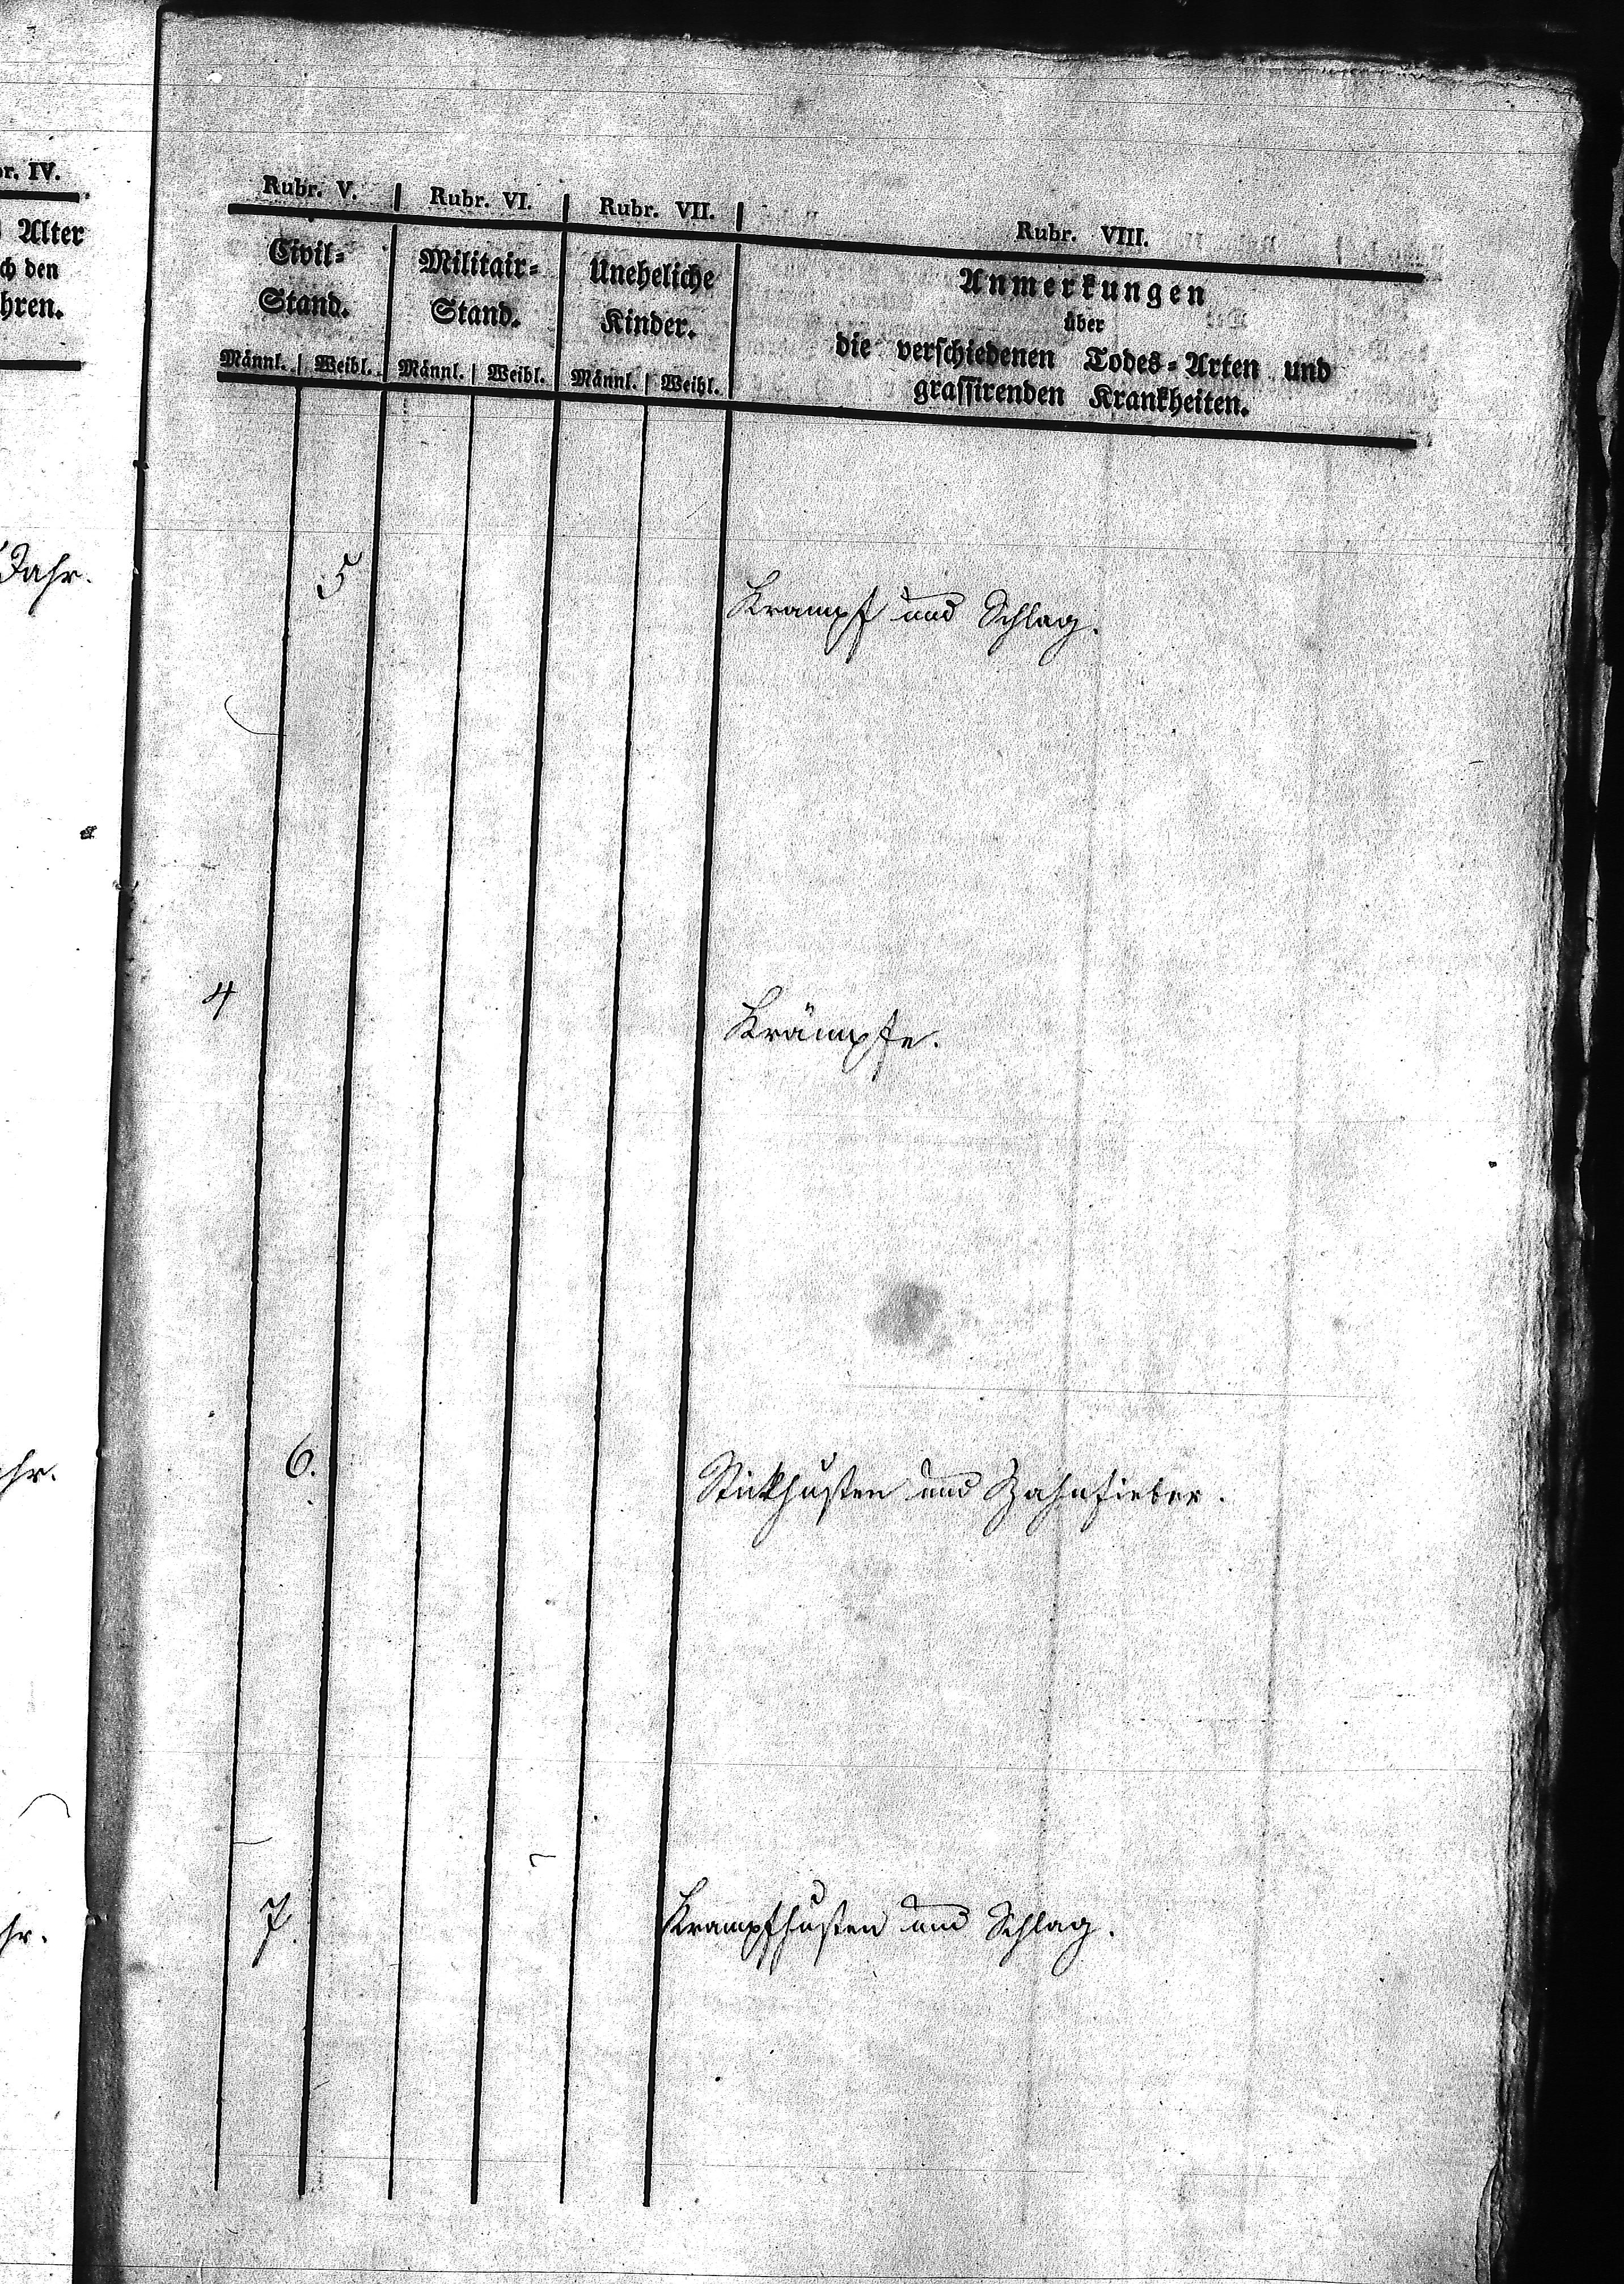 Rubr. V. | Rubr. VI. | Rubr. VII. | Rubr. VIII.
Alter
den
Civil- Militair- Uneheliche Anmerkungen
Stand. Stand. Kinder. über
die verschiedenen Todes-Arten und
Männl. | Weibl. Männl. | Weibl. Männl. | Weibl. grassirenden Krankheiten.
IV.
Jahr.
5 Krampf und Schlag.
4 Krämpfe.
6. Stickhusten und Zahnfieber.
7. Krampfhusten und Schlag.